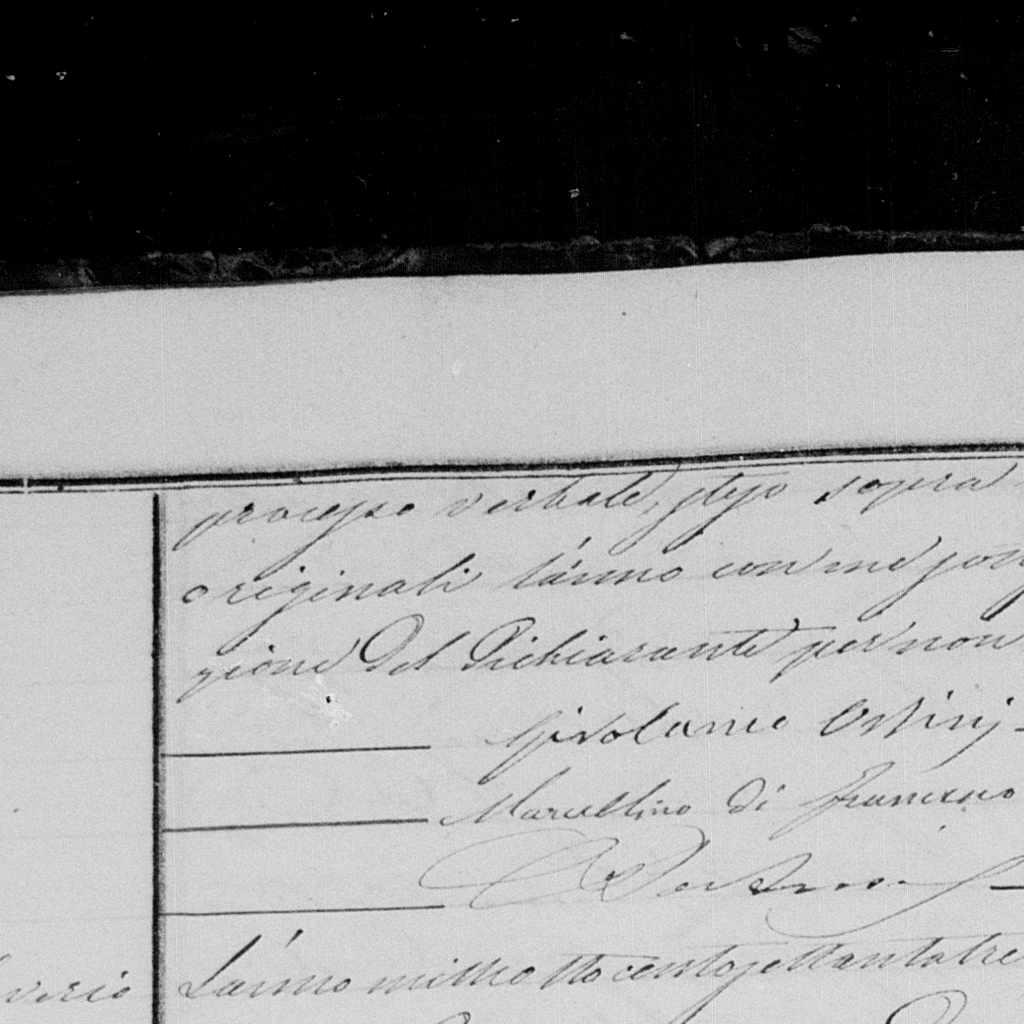 processo verbale, steso sopra
originali l'anno con me sott
zione del Dichiarante per non
Girolamo
Marcellino di Francesco
verio
L'anno mille ottocentosettantatre